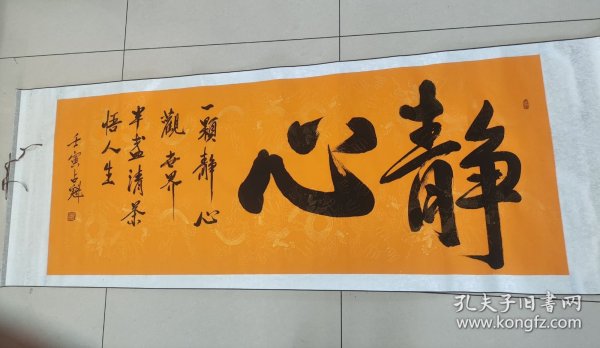 静心
一颗静心
觀世界
半盏清茶
悟人生
壬寅占魁
孔夫子旧书网
www.kongfz.com